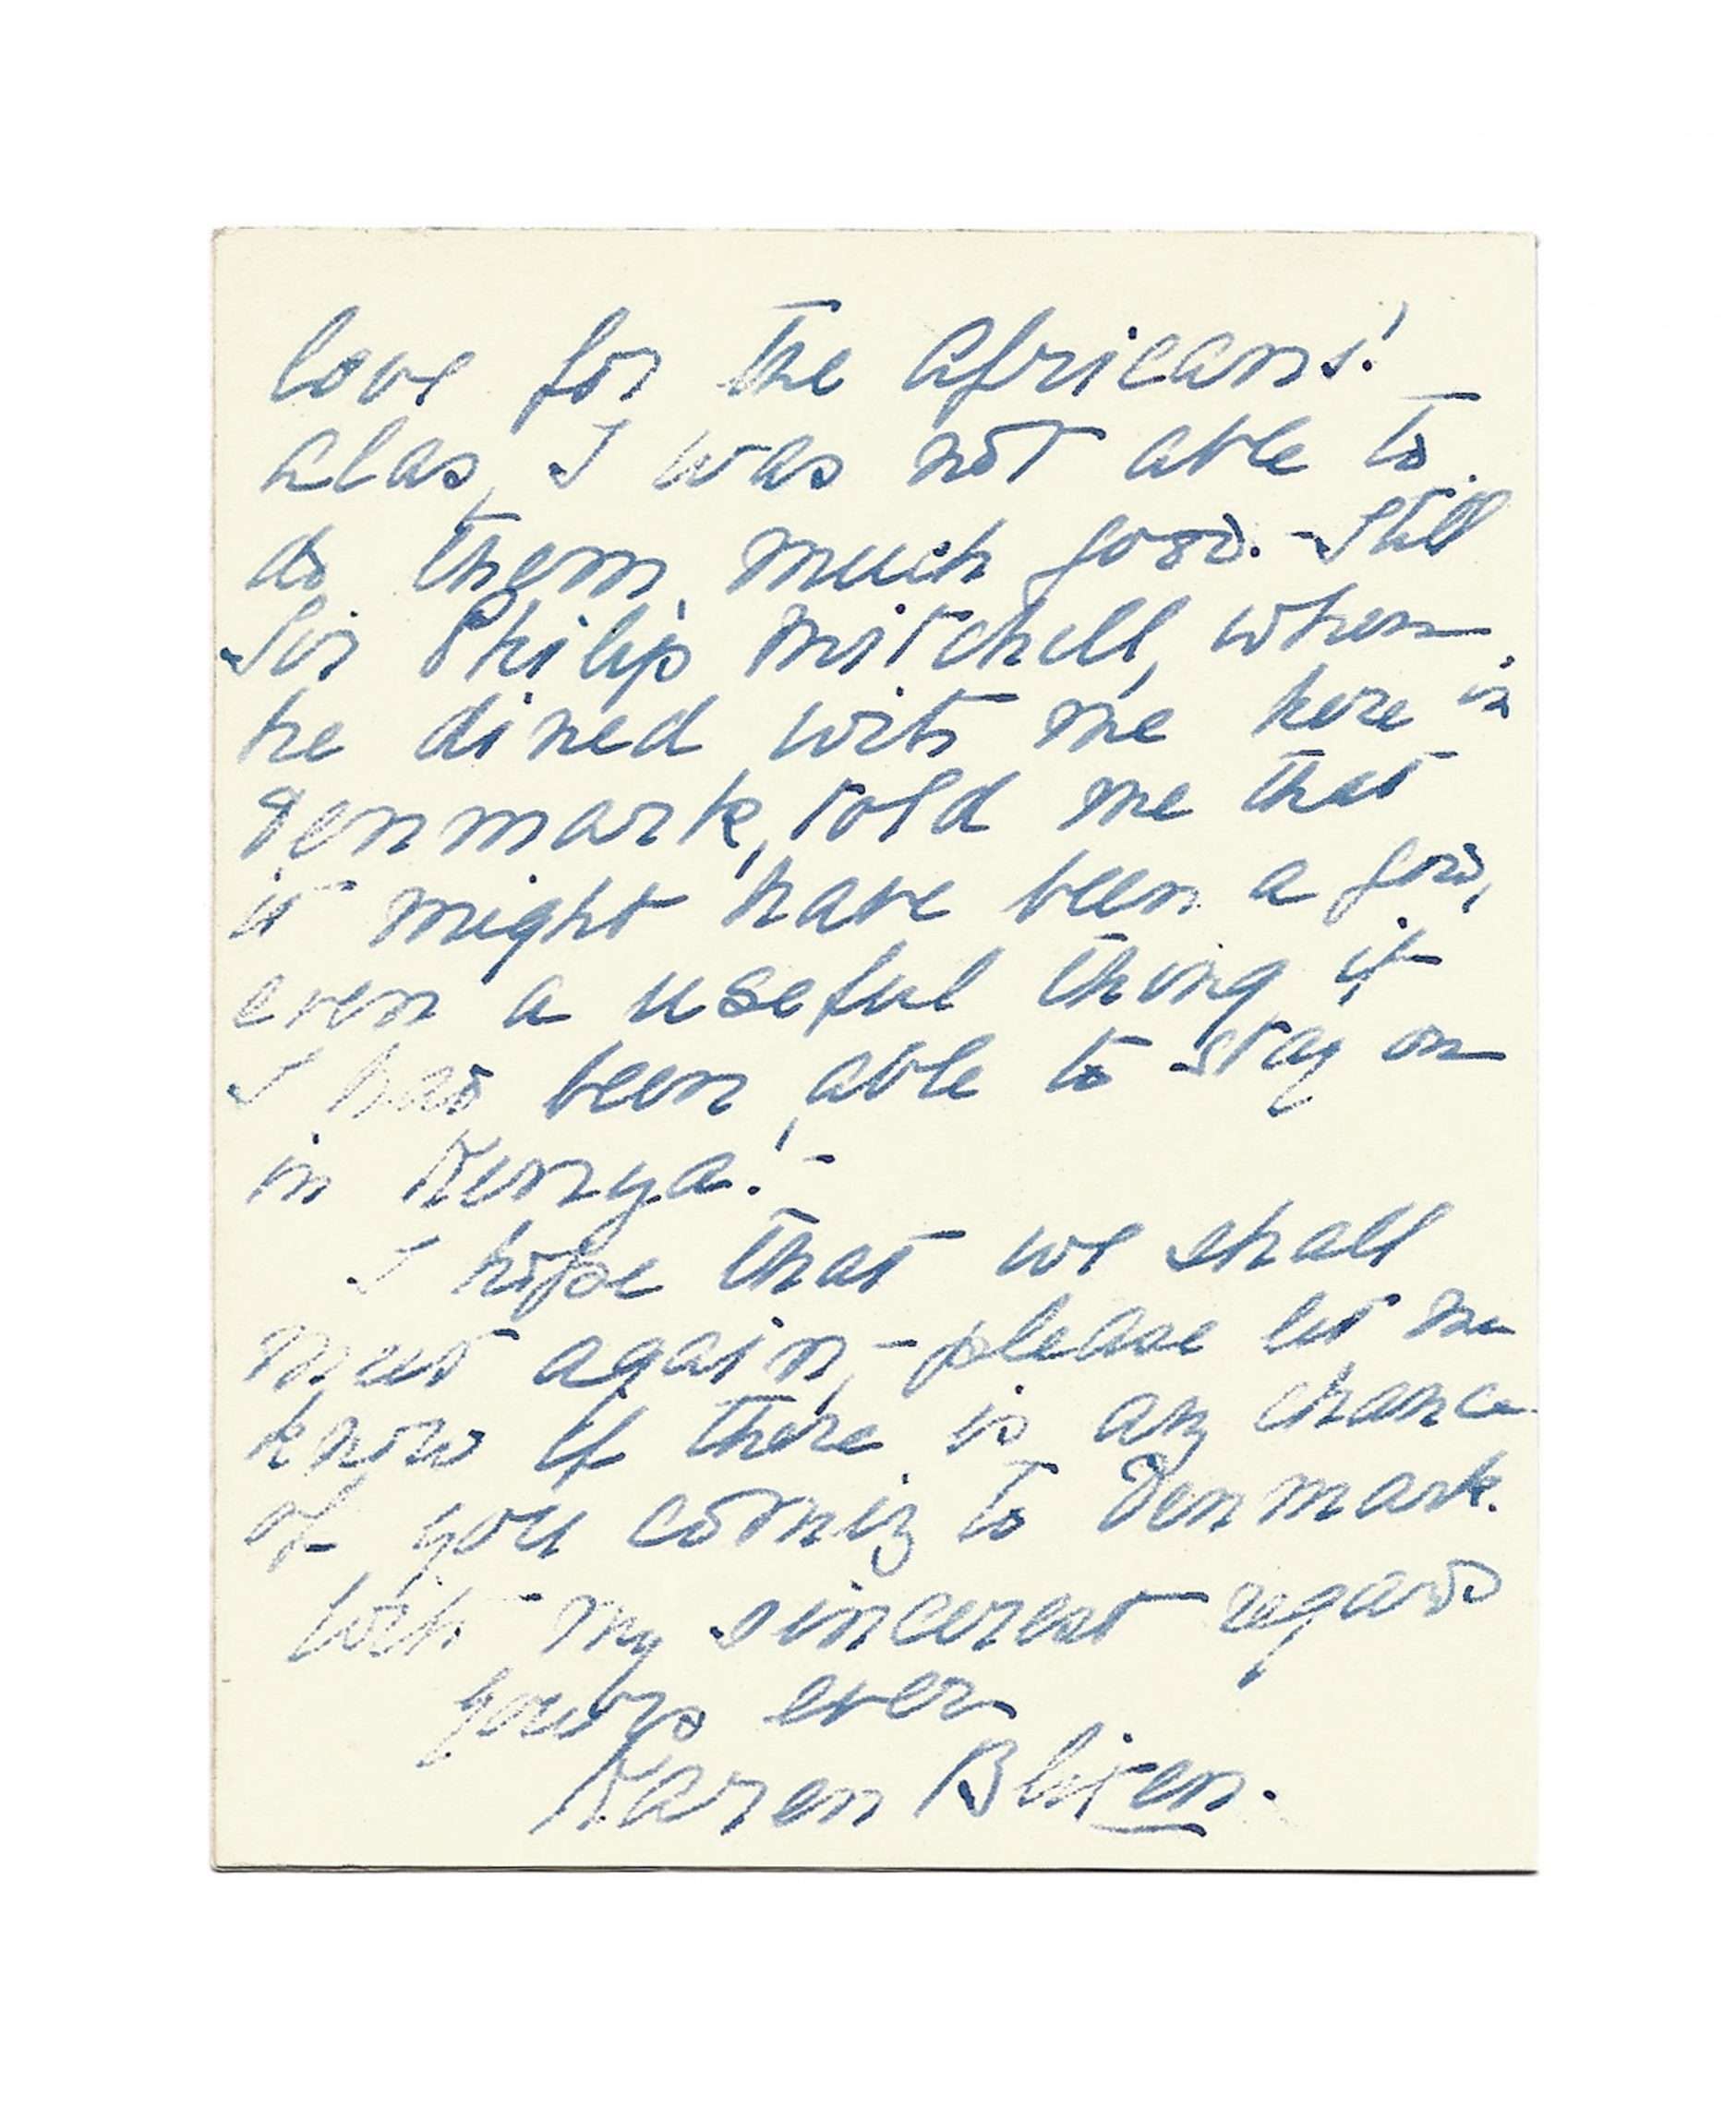 love for the Africans!
Alas, I was not able to
do them much good. - Still
Sir Philip Mitchell, when
he dined with me here in
Denmark, told me that
it might have been a good,
even a useful thing if
I had been able to stay on
in Kenya! -
I hope that we shall
meet again, - please let me
know if there is any chance
of you coming to Denmark.
With my sincerest regards
yours ever
Karen Blixen.